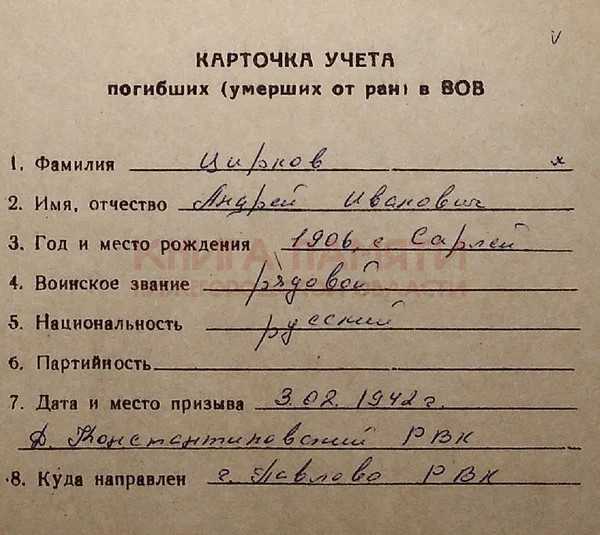 V
КАРТОЧКА УЧЕТА
погибших (умерших от ран) в ВОВ
1. Фамилия Цирков х
2. Имя, отчество Андрей Иванович
3. Год и место рождения 1906, с. Сарлей
КНИГА ПАМЯТИ
НИЖЕГОРОДСКОЙ ОБЛАСТИ
4. Воинское звание рядовой
5. Национальность русский
6. Партийность
7. Дата и место призыва 3.02.1942 г.
Д. Константиновский РВК
8. Куда направлен г. Павлово РВК